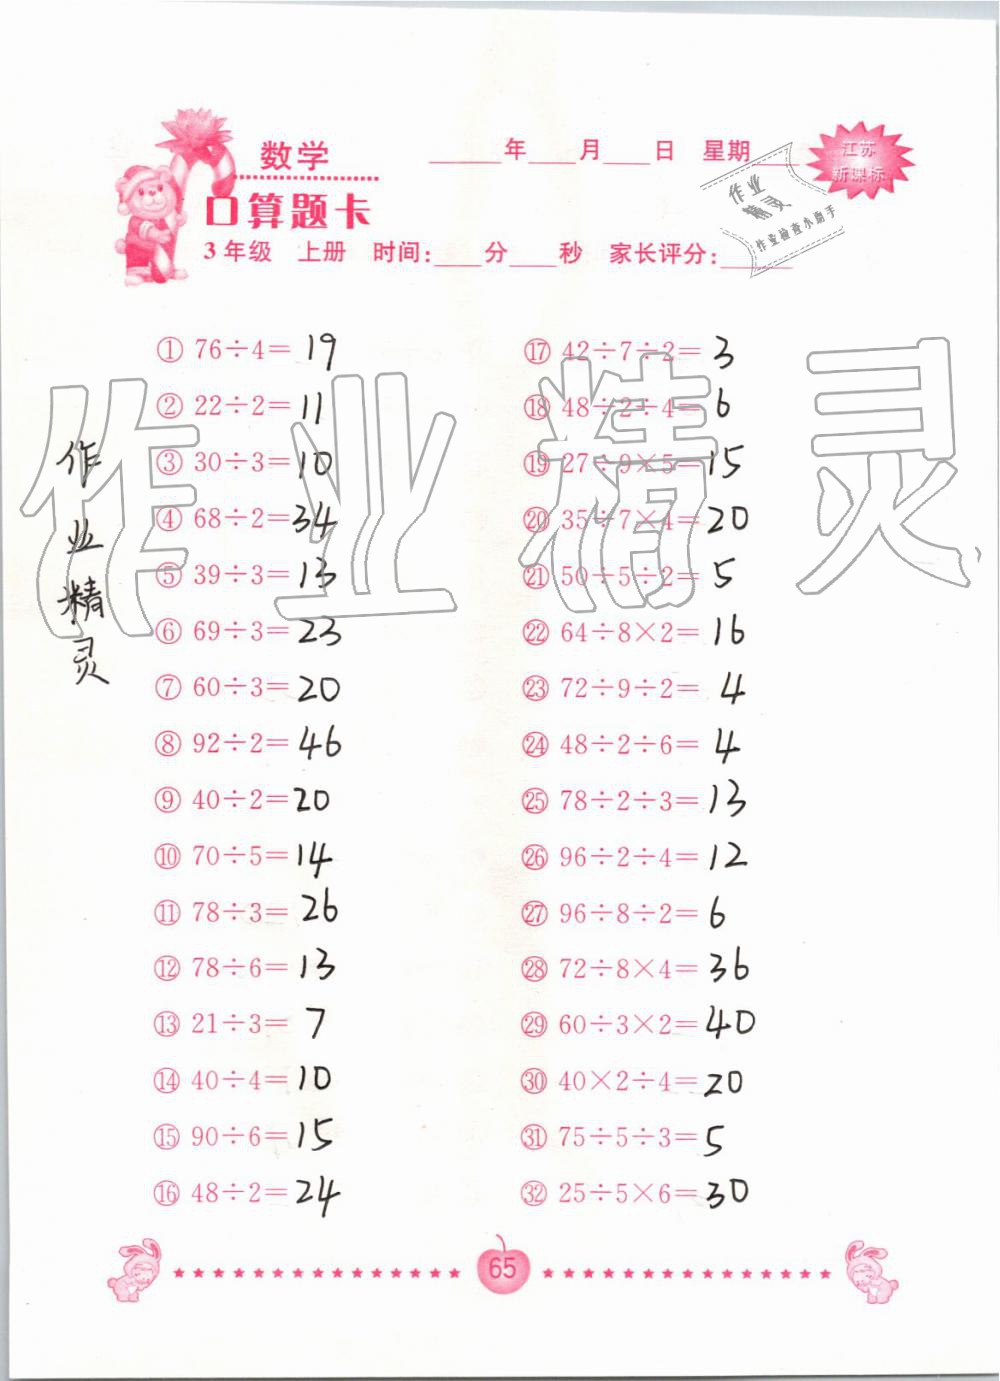 数学
____年____月____日 星期____
江苏
新课标
口算题卡
作业
精灵
作业检查小助手
3年级 上册 时间:____分____秒 家长评分:____
① 76÷4= 19
② 22÷2= 11
③ 30÷3= 10
④ 68÷2= 34
⑤ 39÷3= 13
⑥ 69÷3= 23
⑦ 60÷3= 20
⑧ 92÷2= 46
⑨ 40÷2= 20
⑩ 70÷5= 14
⑪ 78÷3= 26
⑫ 78÷6= 13
⑬ 21÷3= 7
⑭ 40÷4= 10
⑮ 90÷6= 15
⑯ 48÷2= 24
⑰ 42÷7÷2= 3
⑱ 48÷2÷4= 6
⑲ 27÷9×5= 15
⑳ 35÷7×4= 20
㉑ 50÷5÷2= 5
㉒ 64÷8×2= 16
㉓ 72÷9÷2= 4
㉔ 48÷2÷6= 4
㉕ 78÷2÷3= 13
㉖ 96÷2÷4= 12
㉗ 96÷8÷2= 6
㉘ 72÷8×4= 36
㉙ 60÷3×2= 40
㉚ 40×2÷4= 20
㉛ 75÷5÷3= 5
㉜ 25÷5×6= 30
作业精灵
作业精灵
65